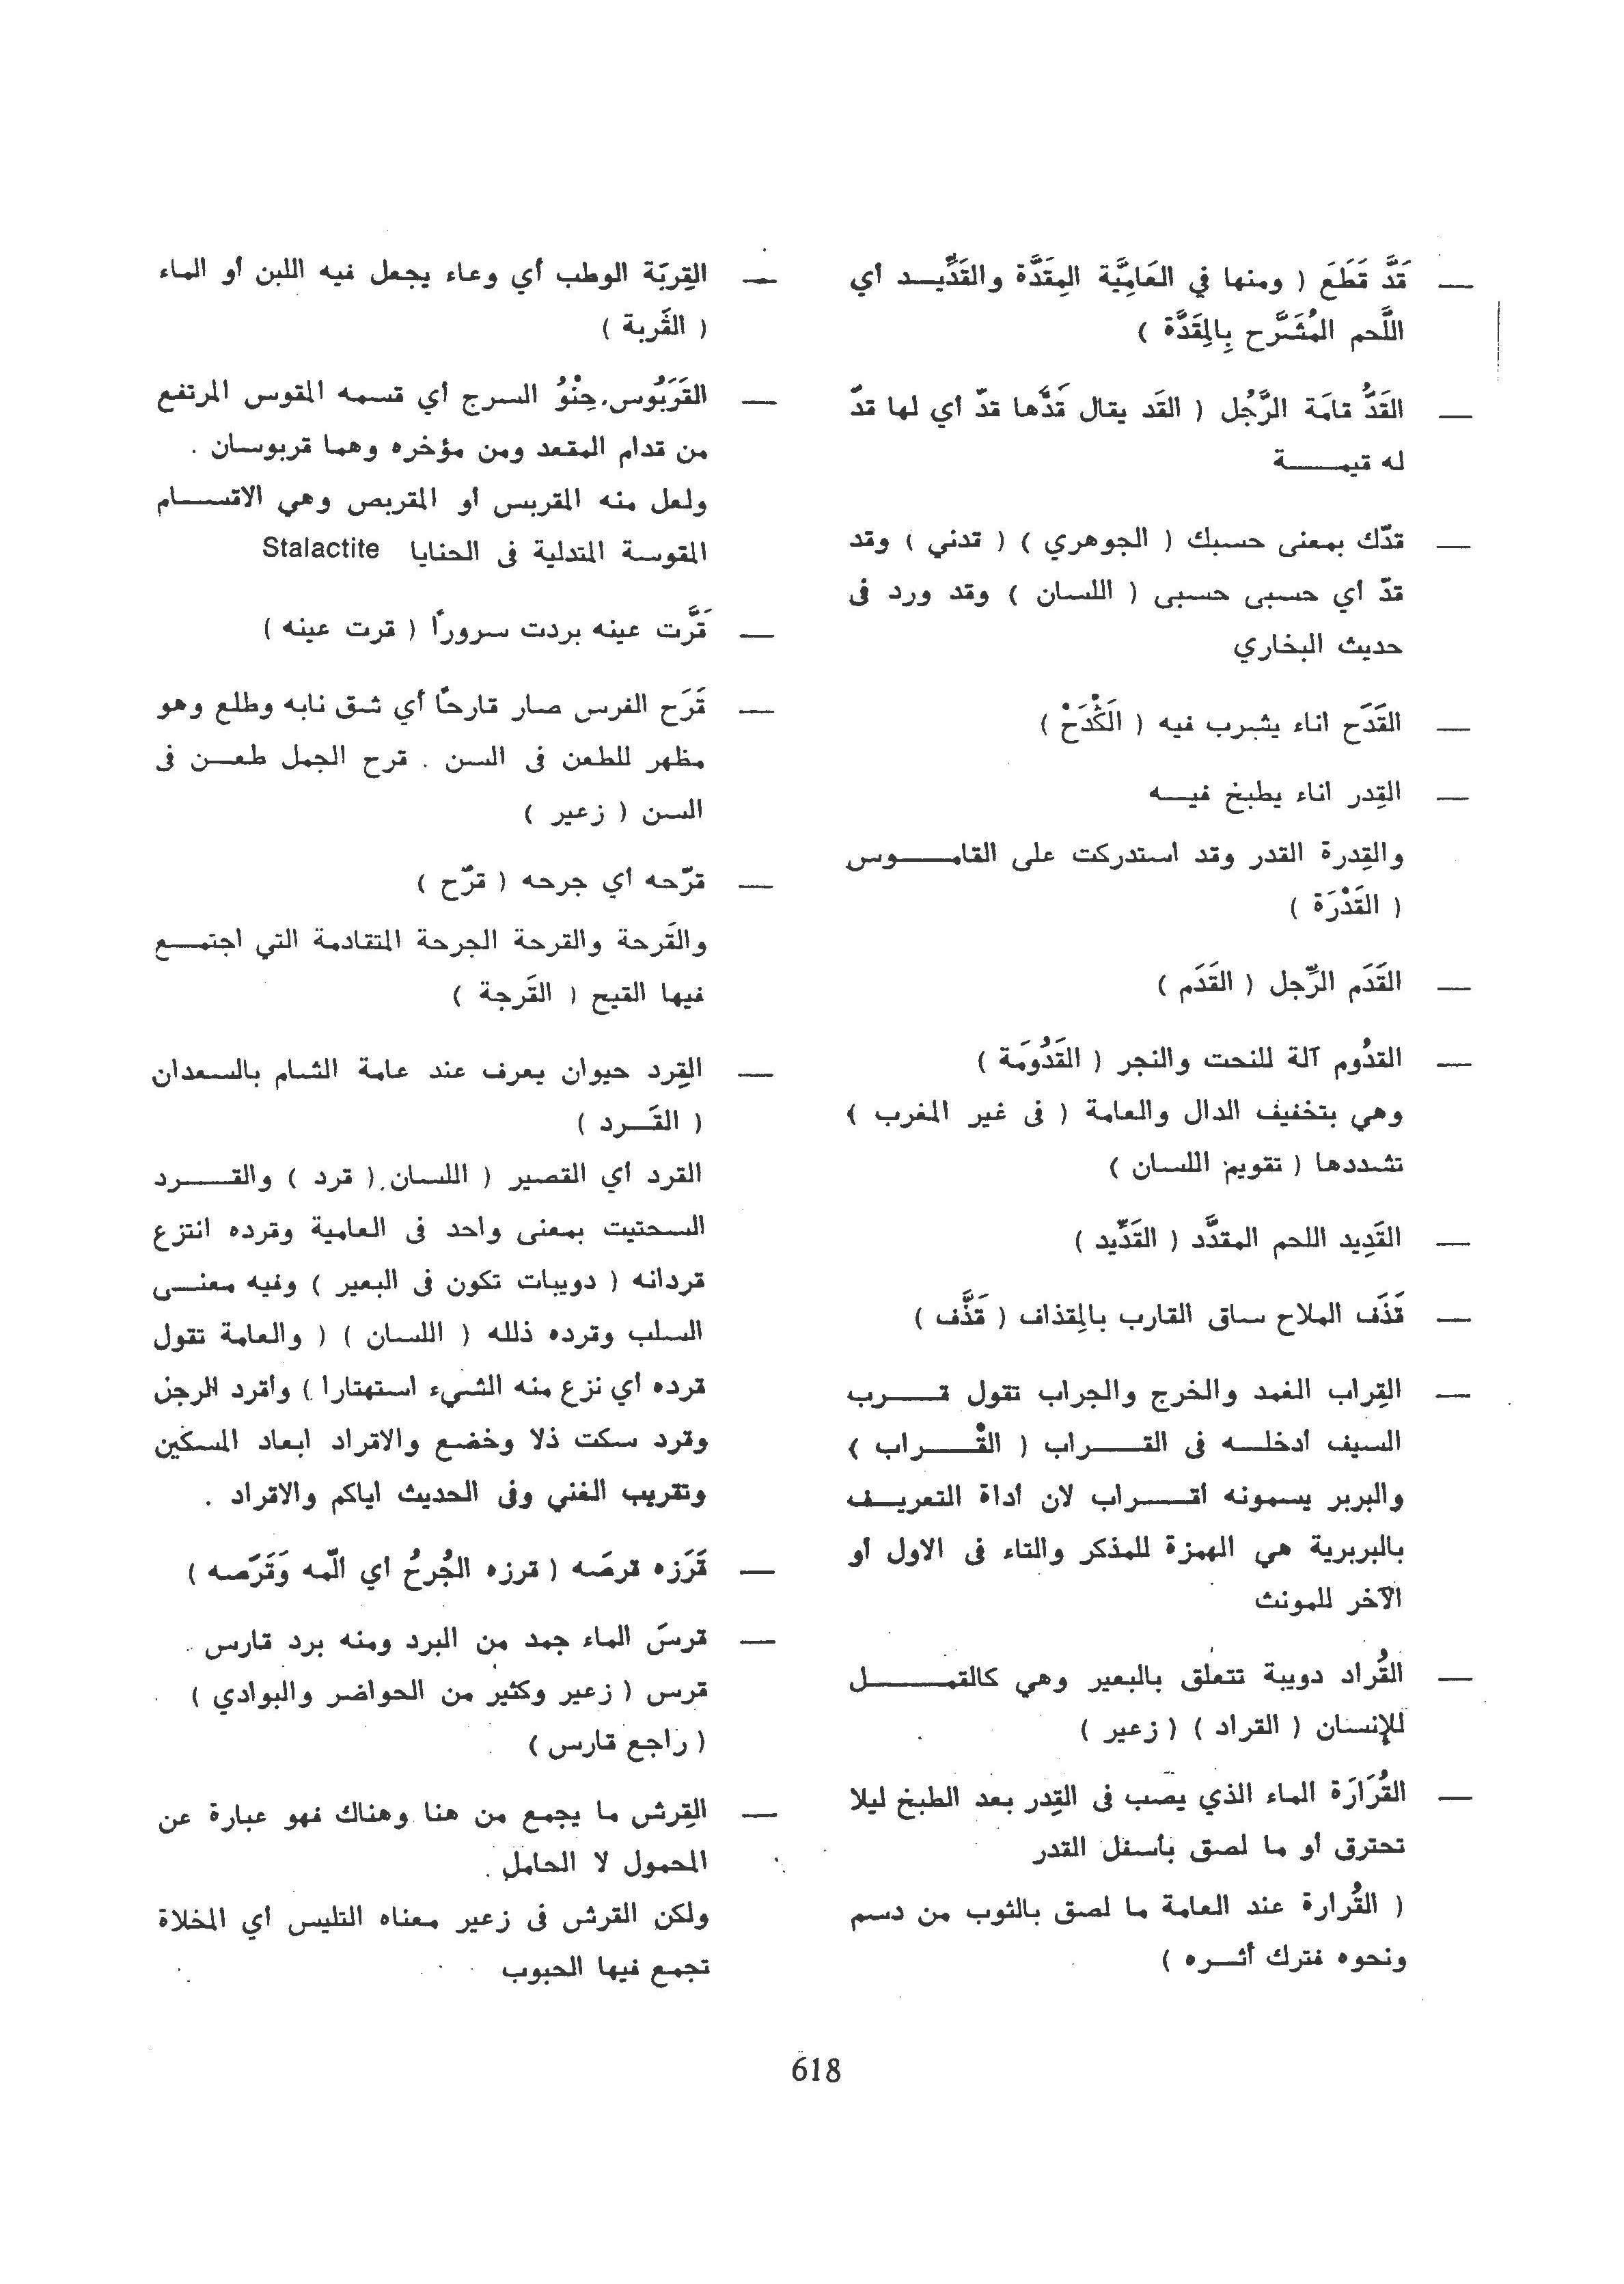 — قَدَّ قَطَعَ ( ومنها في العَامِيَّة المِقَدَّة والقَدِّيـــد أي
اللَّحم المُشَرَّح بِالِمقَدَّة )
— القَدُّ قامَة الرَّجُل ( القَد يقال قَدَّها قدّ أي لها قدّ
له قيمـــــة
— قدّك بمعنى حسبك ( الجوهري ) ( قدني ) وقد
قدّ أي حسبى حسبى ( اللسان ) وقد ورد فى
حديث البخاري
— القَدَح اناء يشرب فيه ( الَكْدَحْ )
— القِدر اناء يطبخ فيـــه
والقِدرة القدر وقد استدركت على القامـــــوس
( القَدْرَة )
— القَدَم الرِّجل ( القَدَم )
— القدُوم آلة للنحت والنجر ( القَدُومَة )
وهي بتخفيف الدال والعامة ( فى غير المغرب )
تشددها ( تقويم اللسان )
— القَدِيد اللحم المقدَّد ( القَدِّيد )
— قَذَف الملاح ساق القارب بالِمقذاف ( قَذَّف )
— القِراب الغمد والخرج والجراب تقول قـــــرب
السيف أدخلـــه فى القـــــراب ( القْـــــراب )
والبربر يسمونه اقـــــراب لان أداة التعريـــف
بالبربرية هي الهمزة للمذكر والتاء فى الاول أو
الآخر للمونث
— القُراد دويبة تتعلق بالبعير وهي كالقمـــــل
للإنسان ( القراد ) ( زعير )
— القُرَارَة الماء الذي يصب فى القِدر بعد الطبخ ليلا
تحترق أو ما لصق بأسفل القدر
( القُرارة عند العامة ما لصق بالثوب من دسم
ونحوه فترك أثـــره )
— القِربَة الوطب أي وعاء يجعل فيه اللبن أو الماء
( القَربة )
— القَرَبُوس، حِنْوُ السرج أي قسمه المقوس المرتفع
من قدام المقعد ومن مؤخره وهما قربوسان .
ولعل منه المقربس أو المقربص وهي الاقســـام
المقوسة المتدلية فى الحنايا Stalactite
— قَرَّت عينه بردت سروراً ( قرت عينه )
— قَرَح الفرس صار قارحًا أي شق نابه وطلع وهو
مظهر للطعن فى السن . قرح الجمل طعـــن فى
السن ( زعير )
— قرّحه أي جرحه ( قرّح )
والقَرحة والقرحة الجرحة المتقادمة التي اجتمـــع
فيها القيح ( القَرجة )
— القِرد حيوان يعرف عند عامة الشام بالسعدان
( القَـــرد )
القرد أي القصير ( اللسان. ( قرد ) والقـــــرد
السحتيت بمعنى واحد فى العامية وقرده انتزع
قردانه ( دويبات تكون فى البعير ) وفيه معنـــى
السلب وقرده ذلله ( اللسان ) ( والعامة تقول
قرده أي نزع منه الشيء استهتارا ) وأقرد الرجل
وقرد سكت ذلا وخضع والاقراد ابعاد المسكين
وتقريب الغني وفى الحديث اياكم والاقراد .
— قَرَزه قرصَه ( قرزه الجُرحُ أي المّه وَقَرَصه )
— قرسَ الماء جمد من البرد ومنه برد قارس .
قرس ( زعير وكثير من الحواضر والبوادي )
( راجع قارس )
— القِرش ما يجمع من هنا وهناك فهو عبارة عن
المحمول لا الحامل .
ولكن القرش فى زعير معناه التليس أي المخلاة
تجمع فيها الحبوب
618